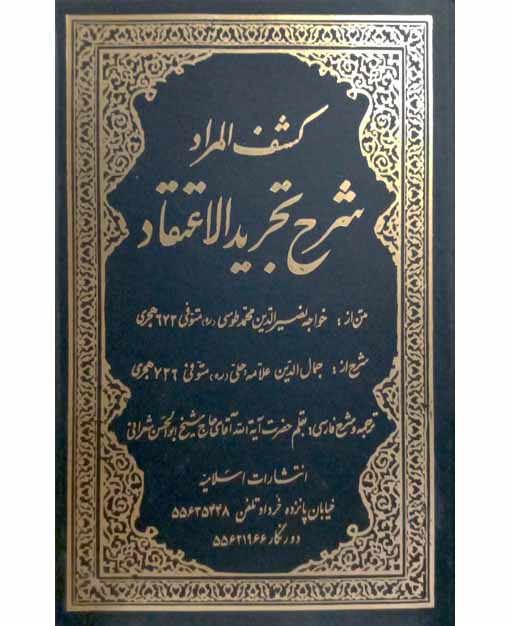 کشف المراد
شرح تجرید الاعتقاد
متن از: خواجه نصیرالدین محمد طوسی (ره) متوفی ۶۷۲ هجری
شرح از: جمال الدین علامه حلی (ره) متوفی ۷۲۶ هجری
ترجمه و شرح فارسی: بقلم حضرت آیة الله آقای حاج شیخ ابوالحسن شعرانی
انتشارات اسلامیه
خیابان پانزده خرداد تلفن ۵۵۶۳۵۴۴۸
دورنگار ۵۵۶۲۱۹۶۶